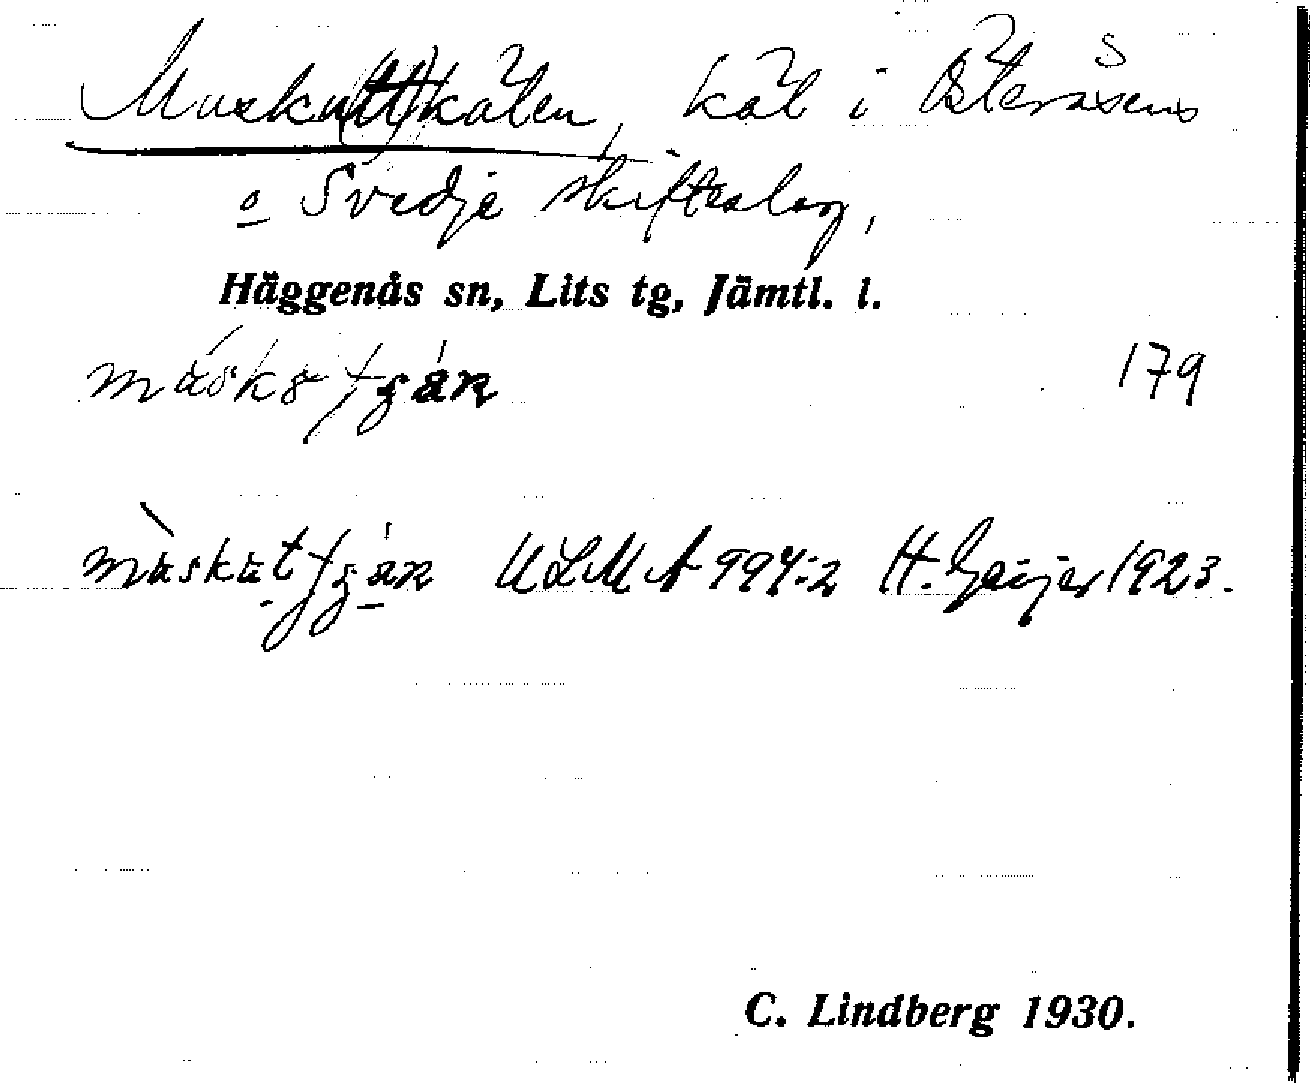 Musku(tt)kölen, köl i Österåsens
o Svedje skifteslag,
Häggenås sn, Lits tg, Jämtl. l.
179
ULMA 994:2 H. Geijer 1923.
C. Lindberg 1930.